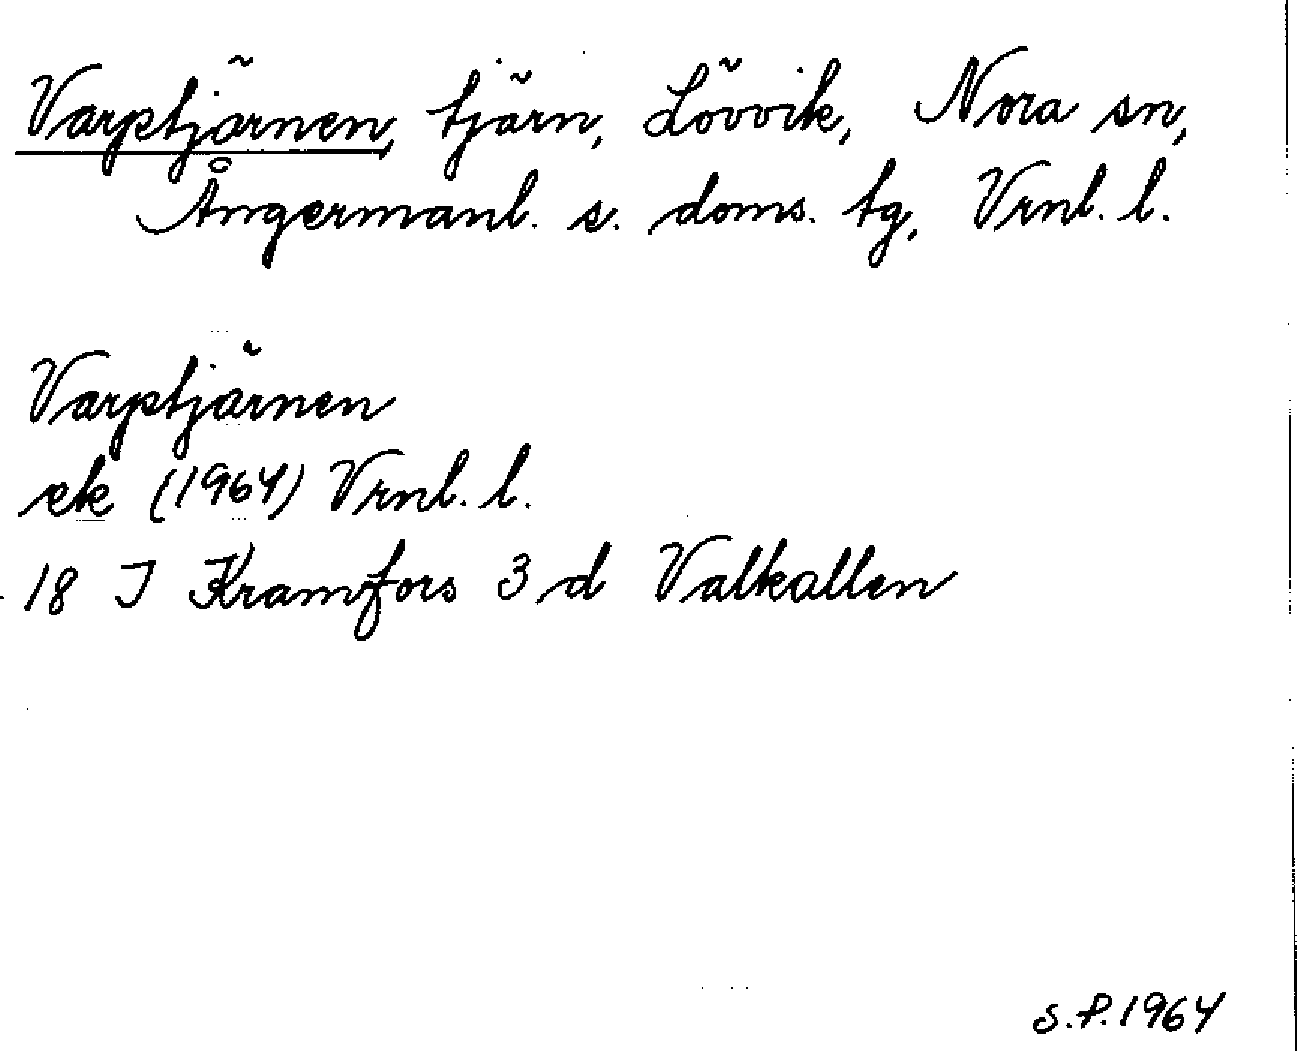 Varptjärnen, tjärn, Lövvik, Nora sn,
Ångermanl. s. doms. tg, Vrnl. l.
Varptjärnen
ek (1964) Vrnl. l.
18 I Kramfors 3 d Valkallen
S.P. 1964